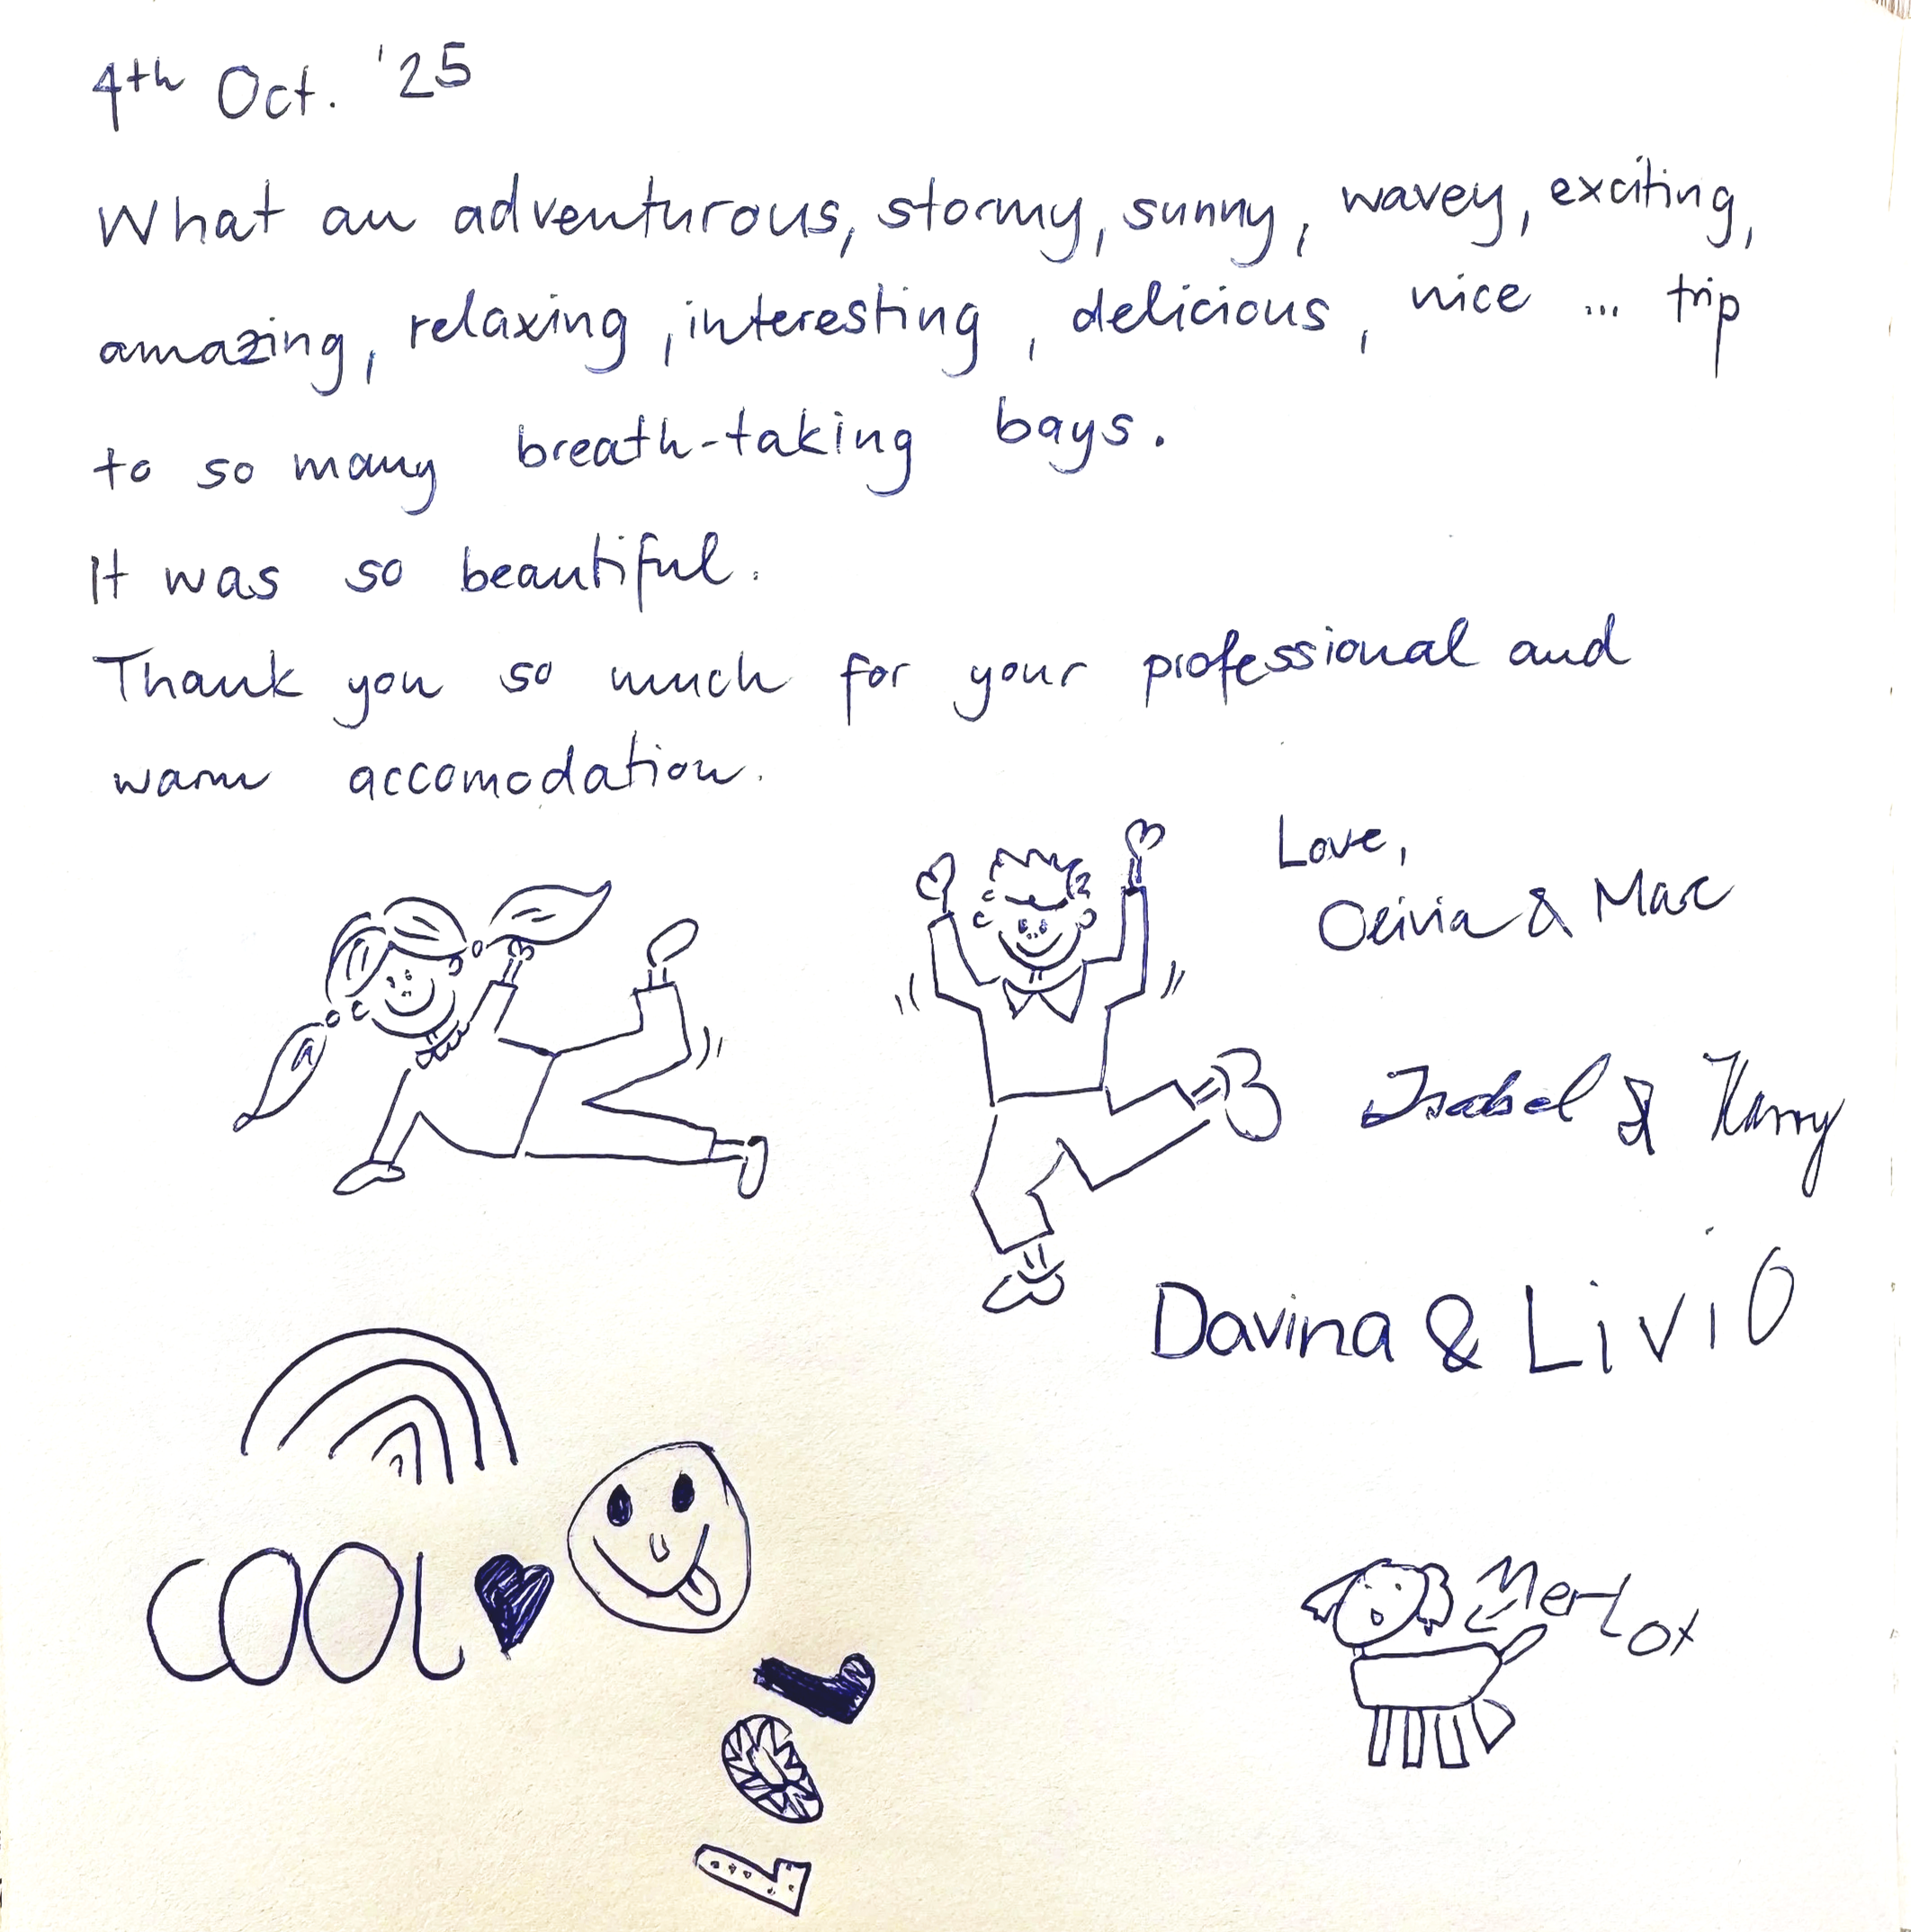 4th Oct. '25
What an adventurous, stormy, sunny, wavey, exciting,
amazing, relaxing, interesting, delicious, nice ... trip
to so many breath-taking bays.
It was so beautiful.
Thank you so much for your professional and
warm accomodation.
Love,
Olivia & Mac
Isabel & Harry
Davina & Livio
COOL
Merlot
LOL